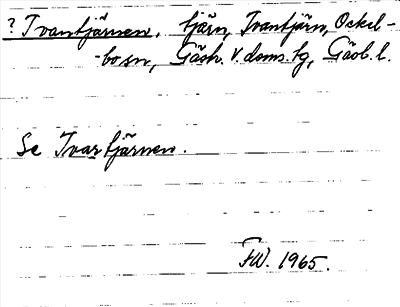 ? Tvantjärnen, tjärn, Tvantjärn, Ockel-
-bo sn, Gästr. V. doms. tg, Gävl. l.
Se Tvartjärnen.
FW. 1965.